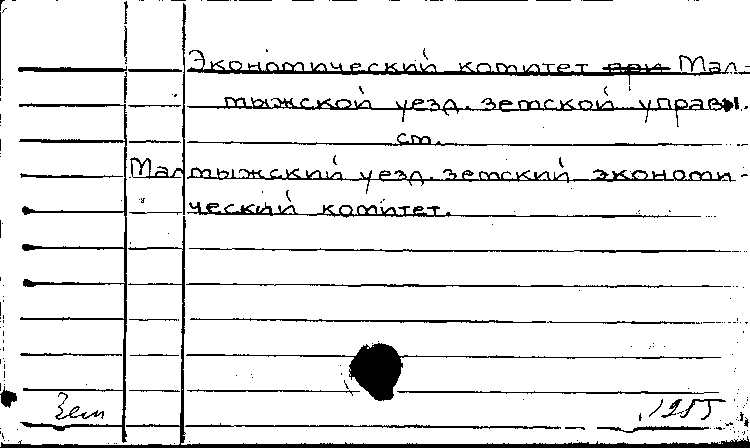 Экономический комитет при Мал-
мыжской уезд. земской управы.
см.
Малмыжский уезд. земский экономи-
ческий комитет.
Зем 1955